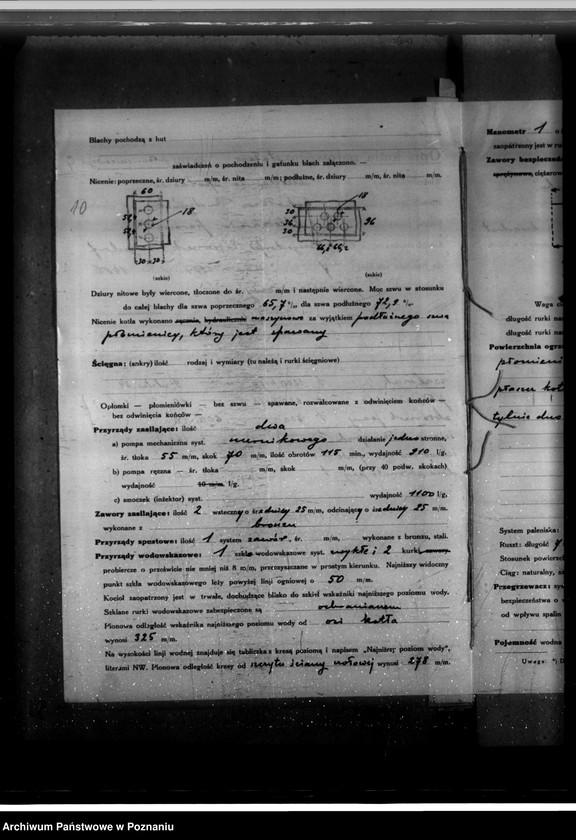 Blachy pochodzą z hut
zaświadczeń o pochodzeniu i gatunku blach załączono. —
Nicenie: poprzeczne, śr. dziury m/m, śr. nita m/m; podłużne, śr. dziury m/m, śr. nita m/m.
10
60
18
30 30
(szkic)
18
30
36
30
96
(szkic)
Dziury nitowe były wiercone, tłoczone do śr. m/m i następnie wiercone. Moc szwu w stosunku
do całej blachy dla szwa poprzecznego 65,7 % dla szwa podłużnego 72,9 %.
Nicenie kotła wykonano ręcznie, hydraulicznie maszynowo za wyjątkiem podłużnego szwa
płomienicy, który jest spawany
Ścięgna: (ankry) ilość rodzaj i wymiary (tu należą i rurki ścięgniowe)
Opłomki — płomieniówki — bez szwu — spawane, rozwalcowane z odwinięciem końców —
bez odwinięcia końców —
Przyrządy zasilające: ilość dwa
a) pompa mechaniczna syst. działanie jednostronne,
śr. tłoka 55 m/m, skok 70 m/m, ilość obrotów 115 min., wydajność 910 l/g.
b) pompa ręczna — śr. tłoka m/m, skok m/m, (przy 40 podw. skokach)
wydajność 10 m/m. l/g.
c) smoczek (inżektor) syst. wydajność 1100 l/g,
Zawory zasilające: ilość 2 wsteczny o średnicy 25 m/m, odcinający o średnicy 25 m/m.
wykonane z bronzu
Przyrządy spustowe: ilość 1 system zawór, śr. m/m, wykonane z bronzu, stali.
Przyrządy wodowskazowe: 1 szkło wodowskazowe syst. zwykłe i 2 kurki
probiercze o przelewie nie mniej niż 8 m/m, przeczyszczane w prostym kierunku. Najniższy widoczny
punkt szkła wodowskazowego leży powyżej linji ogniowej o 50 m/m.
Kocioł zaopatrzony jest w trwałe, dochodzące blisko do szkieł wskaźniki najniższego poziomu wody.
Szklane rurki wodowskazowe zabezpieczone są ochraniaczem
Pionowa odległość wskaźnika najniższego poziomu wody od osi kotła
wynosi 325 m/m.
Na wysokości linji wodnej znajduje się tabliczka z kresą poziomą i napisem „Najniższy poziom wody",
literami NW. Pionowa odległość kresy od szczytu ściany sitowej wynosi 278 m/m.
Manometr 1 o
zaopatrzony jest w ru
Zawory bezpieczeń
sprężynowe, ciężarow
Waga c
długość rurki na
długość rurki na
Powierzchnia ogrz
płomieni
płaszcz kot
tylnie dno
System paleniska:
Ruszt: długość 7
Stosunek powierzc
Ciąg: naturalny, sz
Przegrzewacz: sy
bezpieczeństwa o
od wpływu spalin
Pojemność wodna
Uwaga: *) D
Archiwum Państwowe w Poznaniu